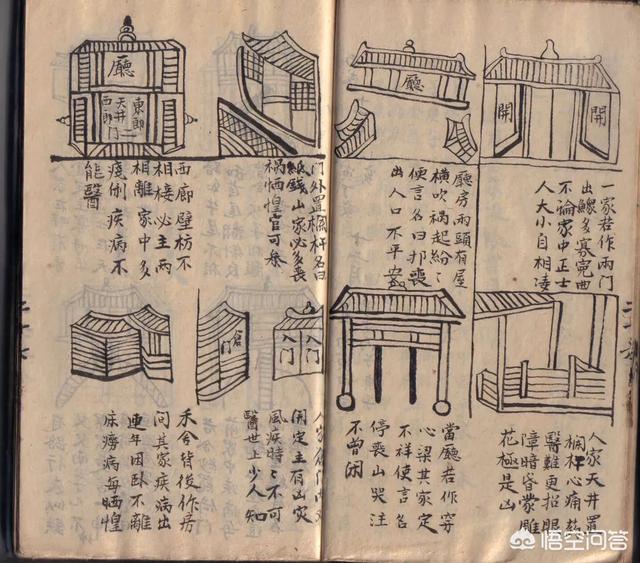 開
開
一家若作兩門
出鰥多寡寃曲
不論家中正士
人大小自相凌
廳
廳房兩頭有屋
橫吹禍起紛々
便言名曰喪
出人口不平安
人家天井置
欄杆心痛
醫難更招眼
障暗昏蒙雕
花極是山
當廳若作穿
心梁其家定
不祥便言名
停喪山哭注
不曾閑
門外置欄杆名曰
紙錢山家必多喪
禍恓惶官可叅
廳
東廊
天井
西廊
門
西廊壁枋不
相接必主兩
相離家中多
痩倒疾病不
能醫
入門
入門
門
人家
開定主有凶灾
風疾時々不可
醫世上少人知
禾舍皆後作房
間其家疾病出
連年因卧不離
床癆病每晒惶
悟空问答